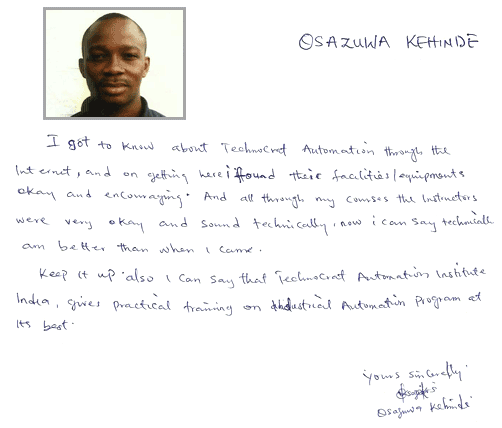 OSAZUWA KEHINDE
I got to know about Technocrat Automation through the
Internet, and on getting here i found their facilities/equipments
okay and encouraging. And all through my courses the Instructors
were very okay and sound technically, now i can say technically
am better than when I came.
Keep it up. also I can say that Technocrat Automation Institute
India, gives practical training on Industrial Automation Program at
its best.
Yours sincerelly
Osazuwa Kehinde